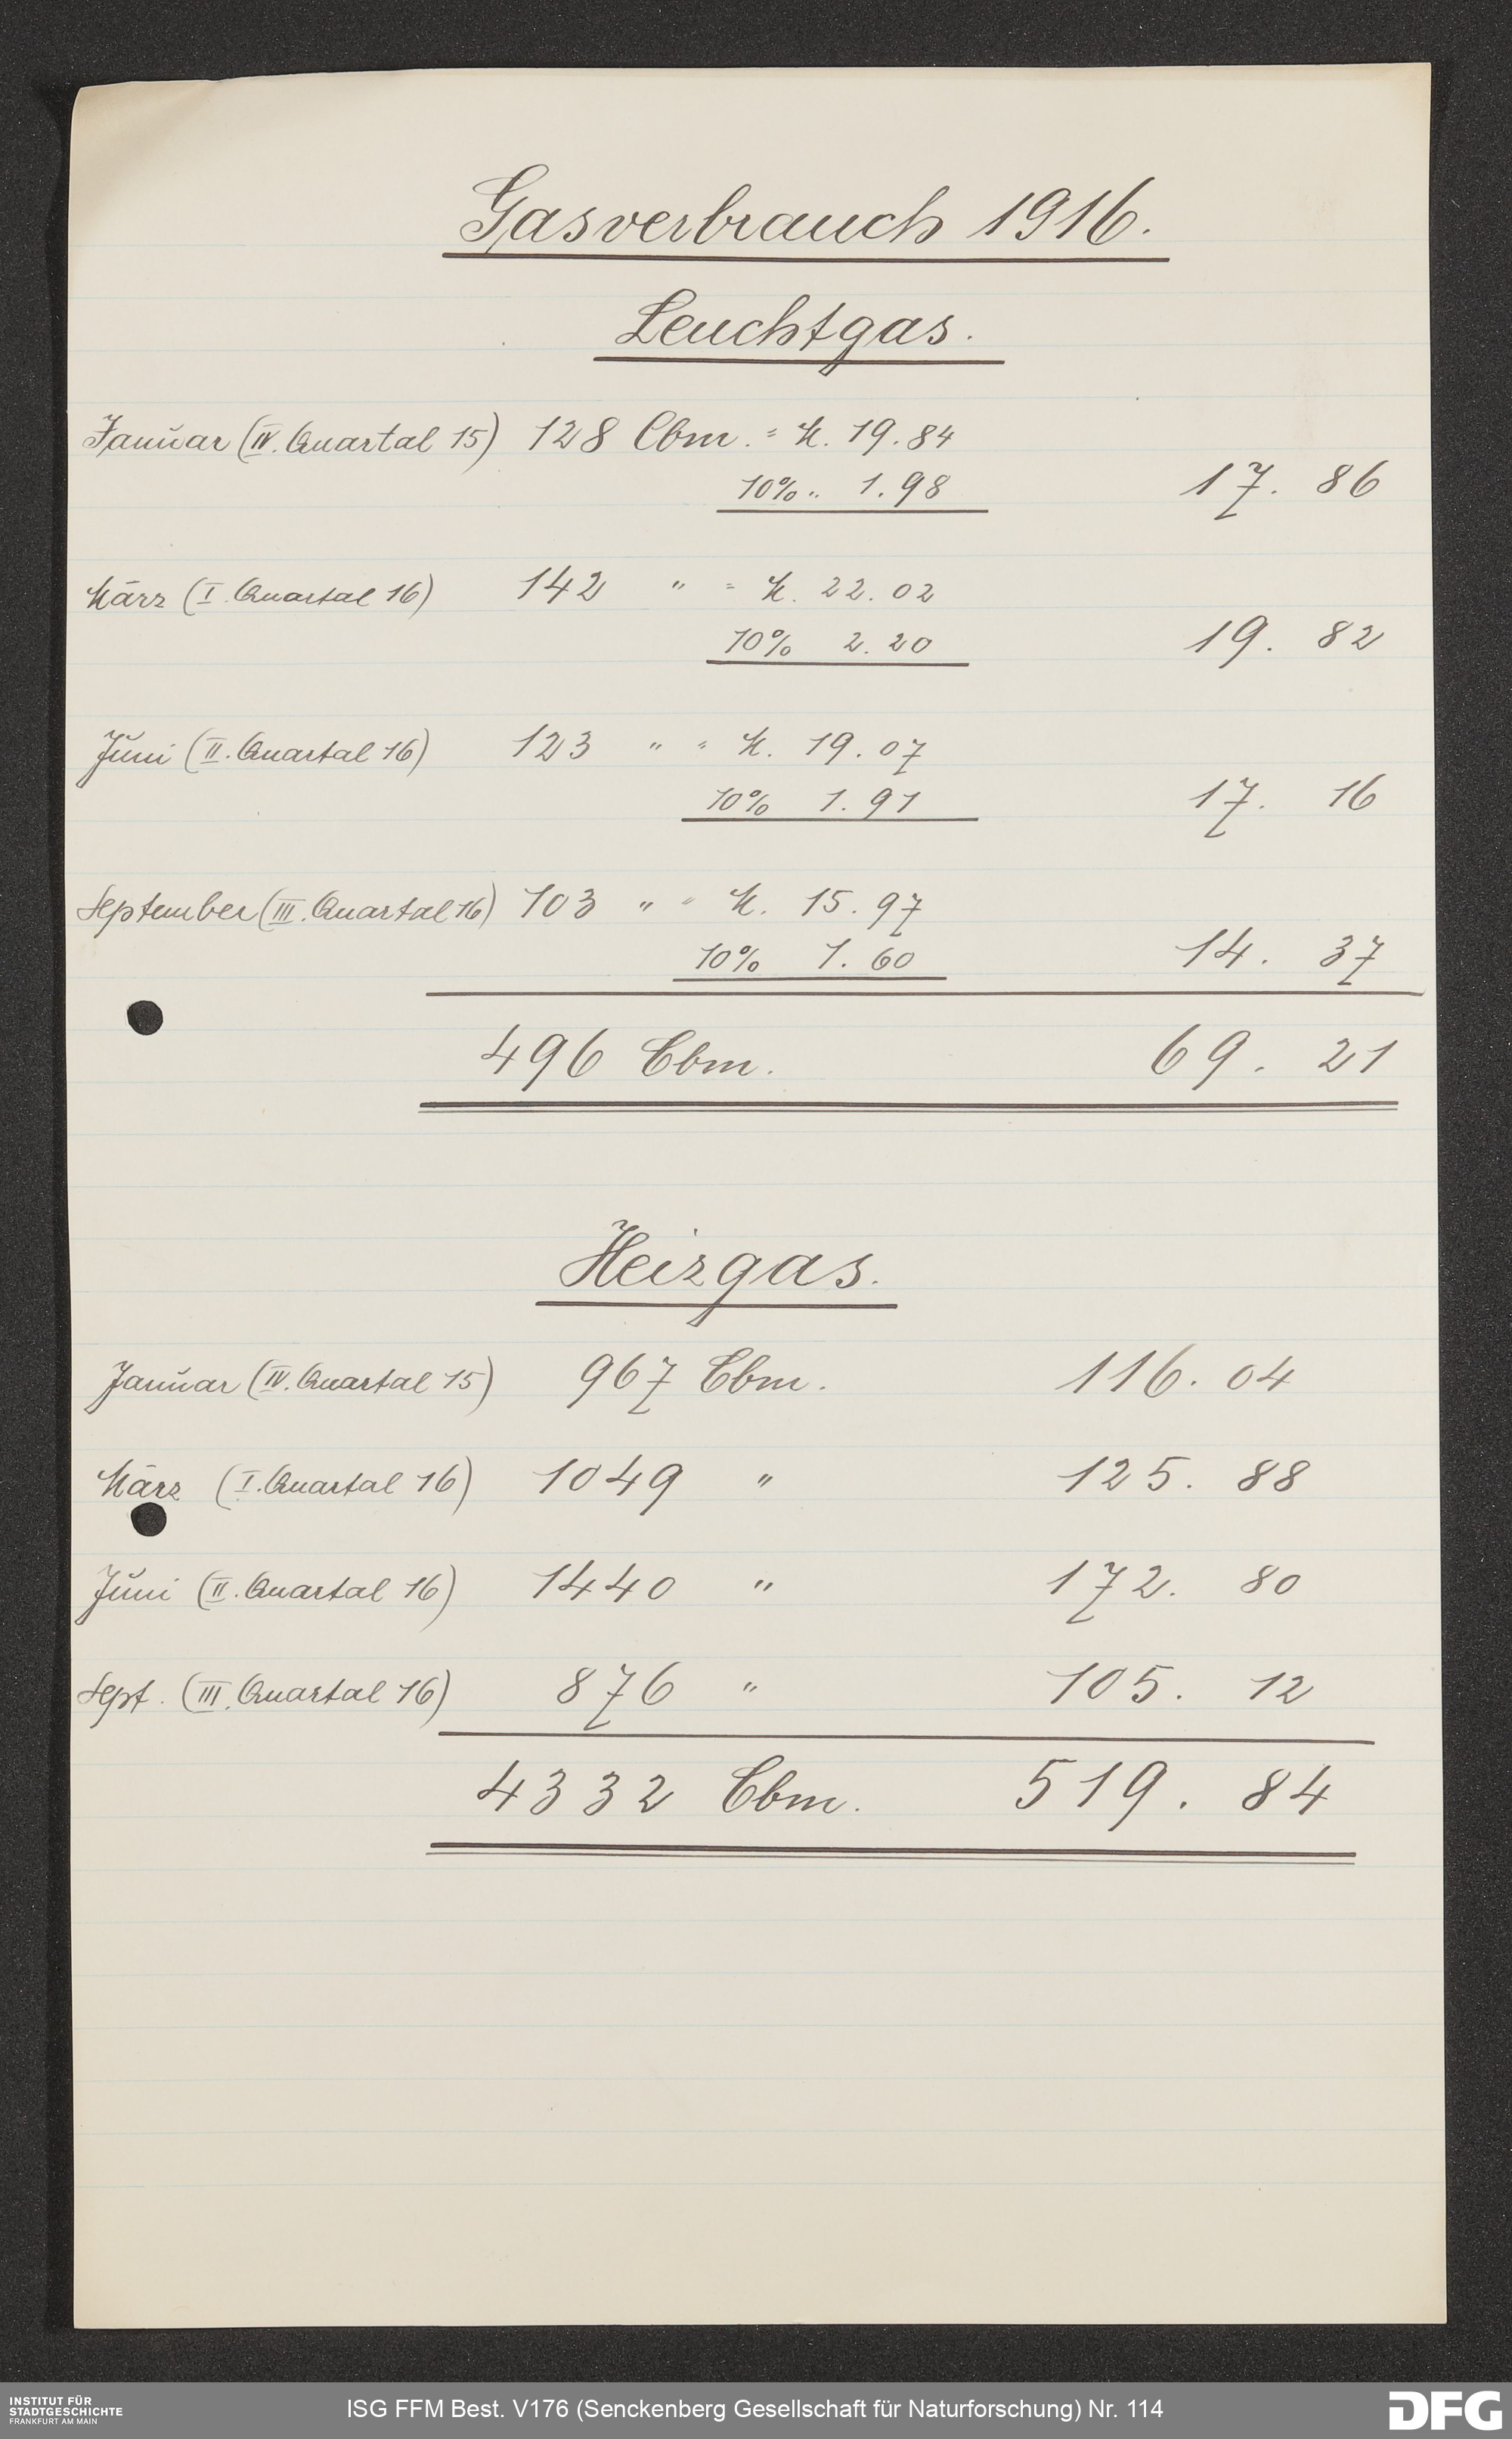 Gasverbrauch 1916.
Leuchtgas.
Januar (IV. Quartal 15) 128 Cbm. = M. 19.84
10% " 1.98 17. 86
März (I. Quartal 16) 142 " = M. 22.02
10% 2.20 19. 82
Juni (II. Quartal 16) 123 " " M. 19.07
10% 1.91 17. 16
September (III. Quartal 16) 103 " " M. 15.97
10% 1.60 14. 37
496 Cbm. 69. 21
Heizgas.
Januar (IV. Quartal 15) 967 Cbm. 116. 04
März (I. Quartal 16) 1049 " 125. 88
Juni (II. Quartal 16) 1440 " 172. 80
Sept. (III. Quartal 16) 876 " 105. 12
4332 Cbm. 519. 84
INSTITUT FÜR
STADTGESCHICHTE
FRANKFURT AM MAIN
ISG FFM Best. V176 (Senckenberg Gesellschaft für Naturforschung) Nr. 114
DFG